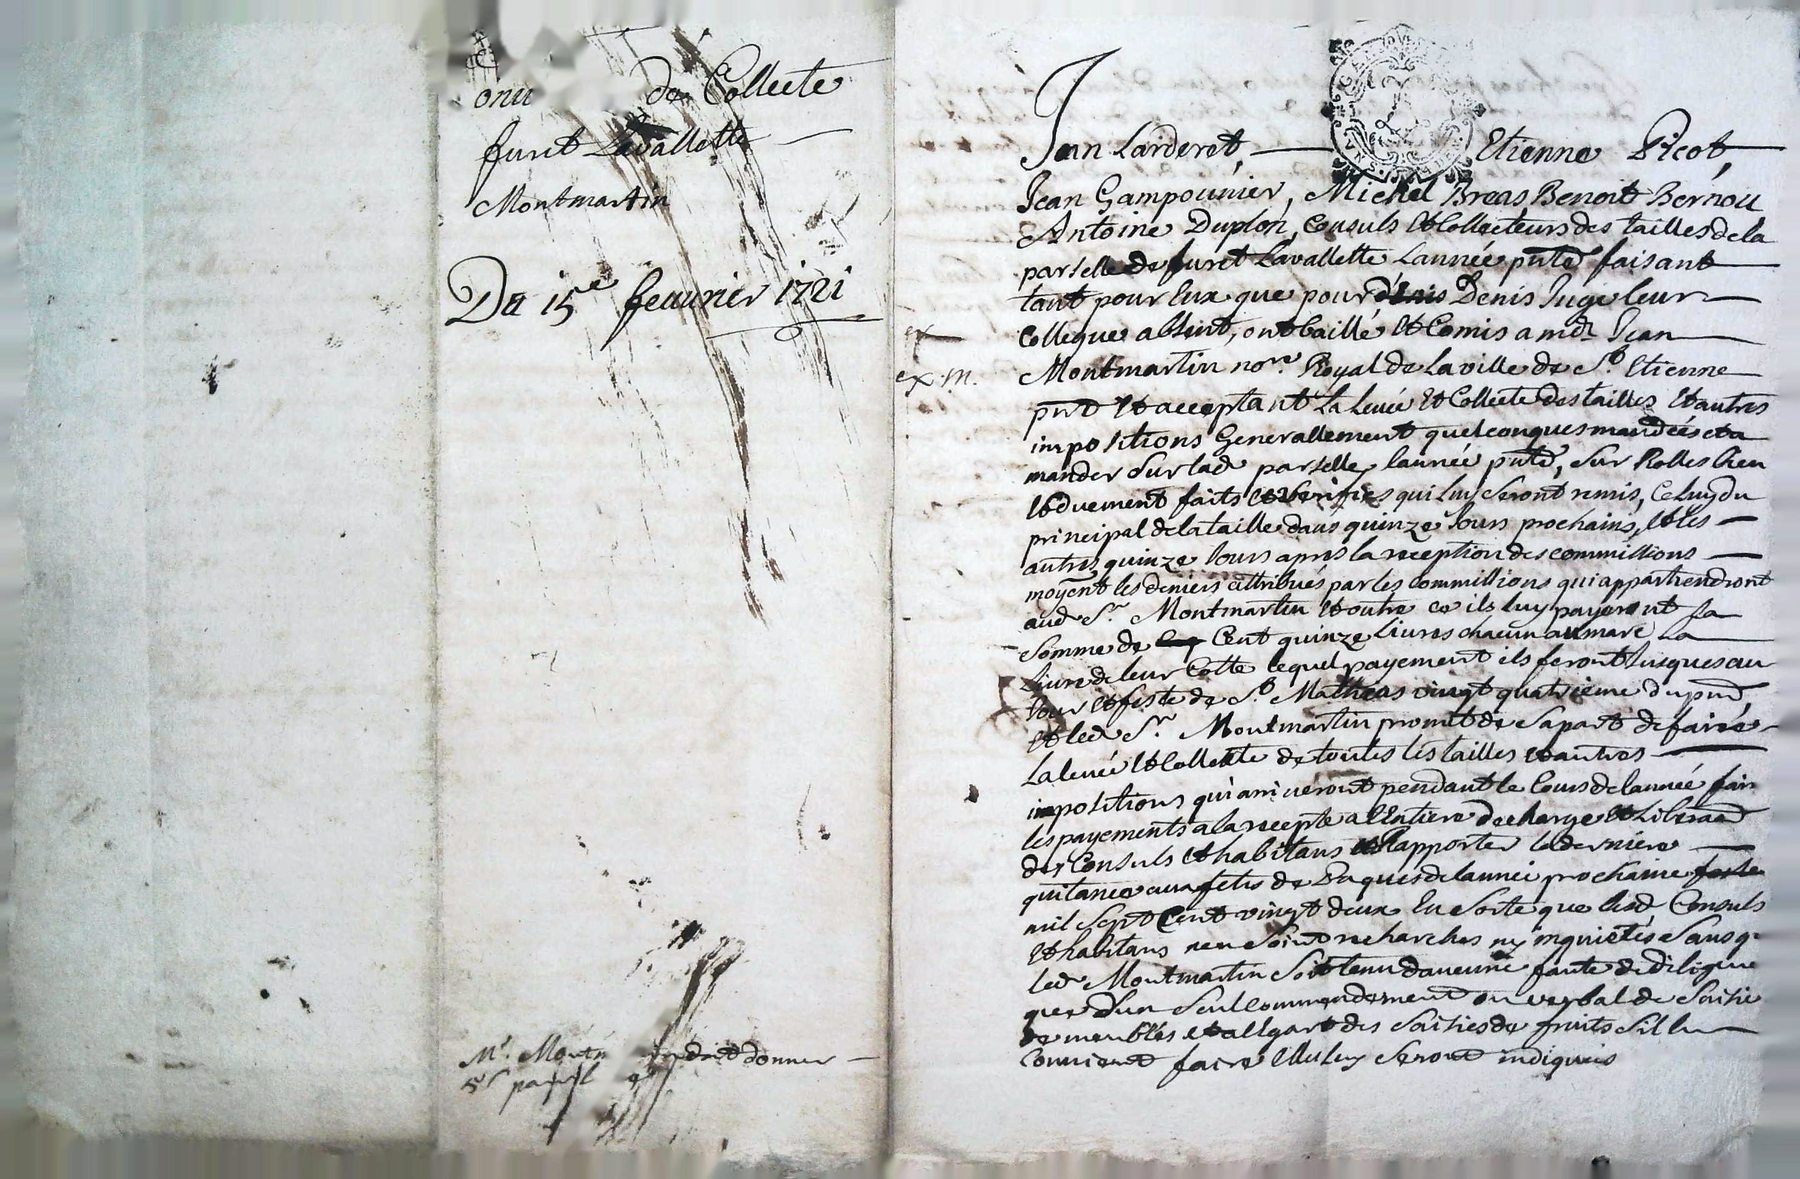 de Collecte
furet Lavallette
Montmartin
Du 15e feuurier 1721
Mr. Montm doit donner
5s pa
ex
ex. m.
Jean Larderet, Etienne Picot,
Jean Gampounier, Michel Breas Benoit Bernou
Antoine Duplon, Consuls Et Collecteurs des tailles de la
parselle de furet Lavallette Lannée pnte faisant
tant pour Eux que pour Denis Juge leur
Collegue absent, ont baillé Et Comis a me Jean
Montmartin nore. Royal de La ville de St. Etienne
pnt Et acceptant La Leuée Et Collecte des tailles Et autres
impositions Generallement quelconques mandées et a
mander Sur lad parselle lannée pnte, Sur Rolles bien
Et duement faits Et Verifies qui Luy Seront remis, Celuy du
principal de la taille dans quinze Jours prochains, Et les
autres quinze Jours apres la reception des commissions
moyent les deniers attribués par les commissions qui appartiendront
aud Sr. Montmartin Et outre ce ils luy payeront La
Somme de Cent quinze Liures chacun au marc La
Liure de leur Cotte lequel payement ils feront Jusques au
Jour Et feste de St. Mathias vingt quatrieme du pnt
Et led Sr. Montmartin promet de Sa part de faire
La leuée Et Collecte de toutes les tailles Et autres
impositions qui arriueront pendant le Cours de lannée fair
les payements a la recepte a lEntiere decharge Et Liberaon
des Consuls Et habitans Et Rapporter la derniere
quitance aux fetes de Paques de lannée prochaine
mil Sept Cent vingt deux En Sorte que lesd Consuls
Et habitans nen Soint recherches ny inquietés Sans q.
led Montmartin Soit tenu daucune faute de diligence
que dun Seul commendement ou verbal de Saisie
de meubles Et a lEgart des Saisies de fruits Sil lu
Convient faire Elle luy Seront indiqueés